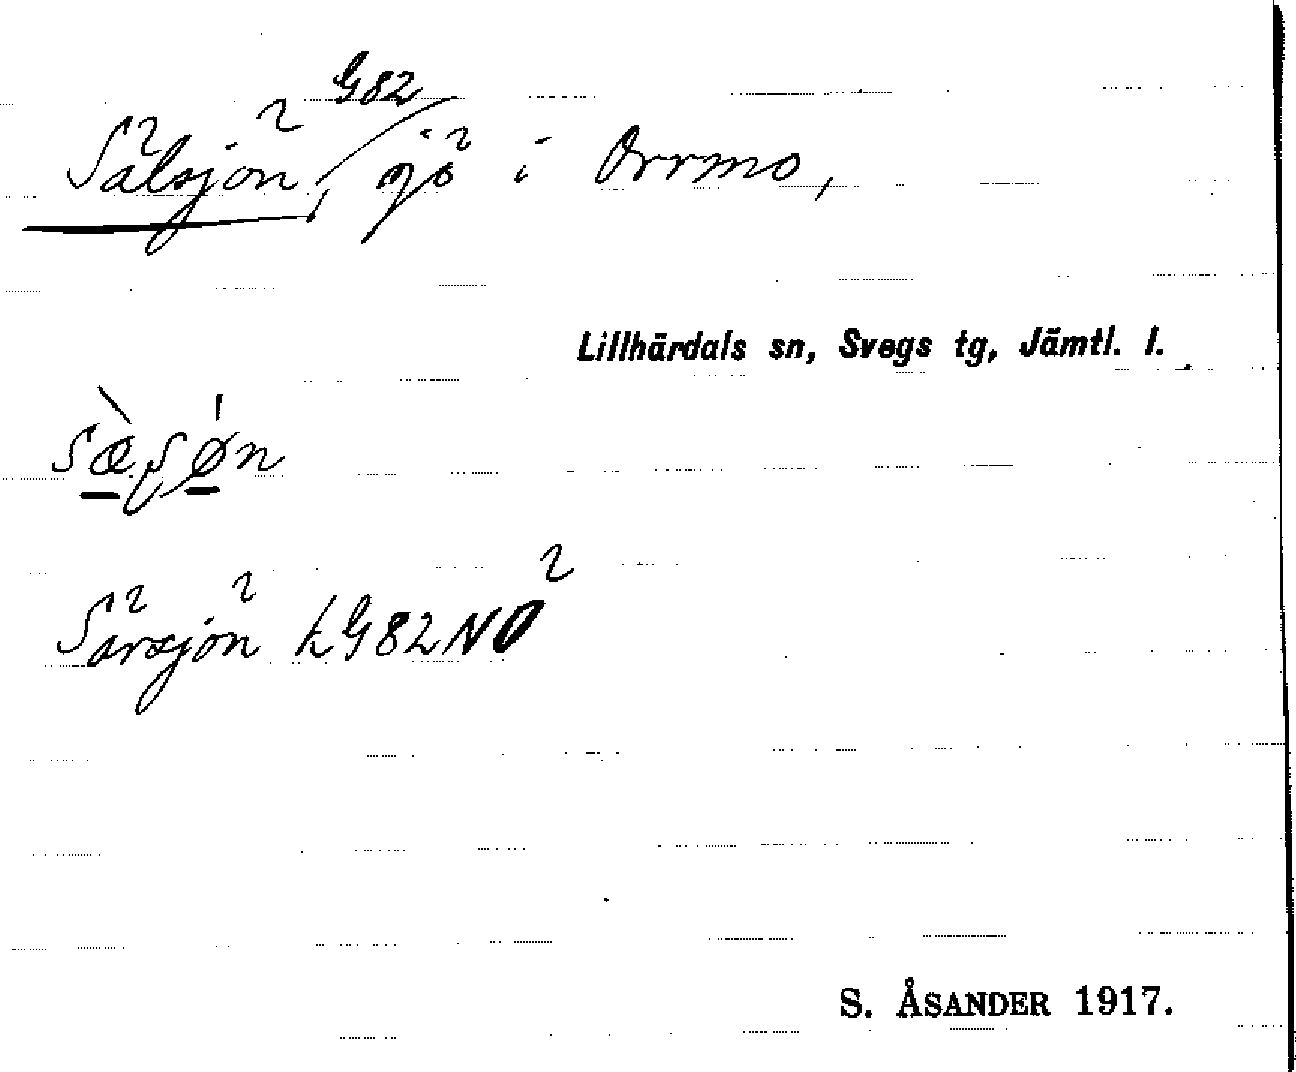 G82
Sälsjön, sjö i Orrmo,
Lillhärdals sn, Svegs tg, Jämtl. l.
Särsjön LG82NO
S. ÅSANDER 1917.